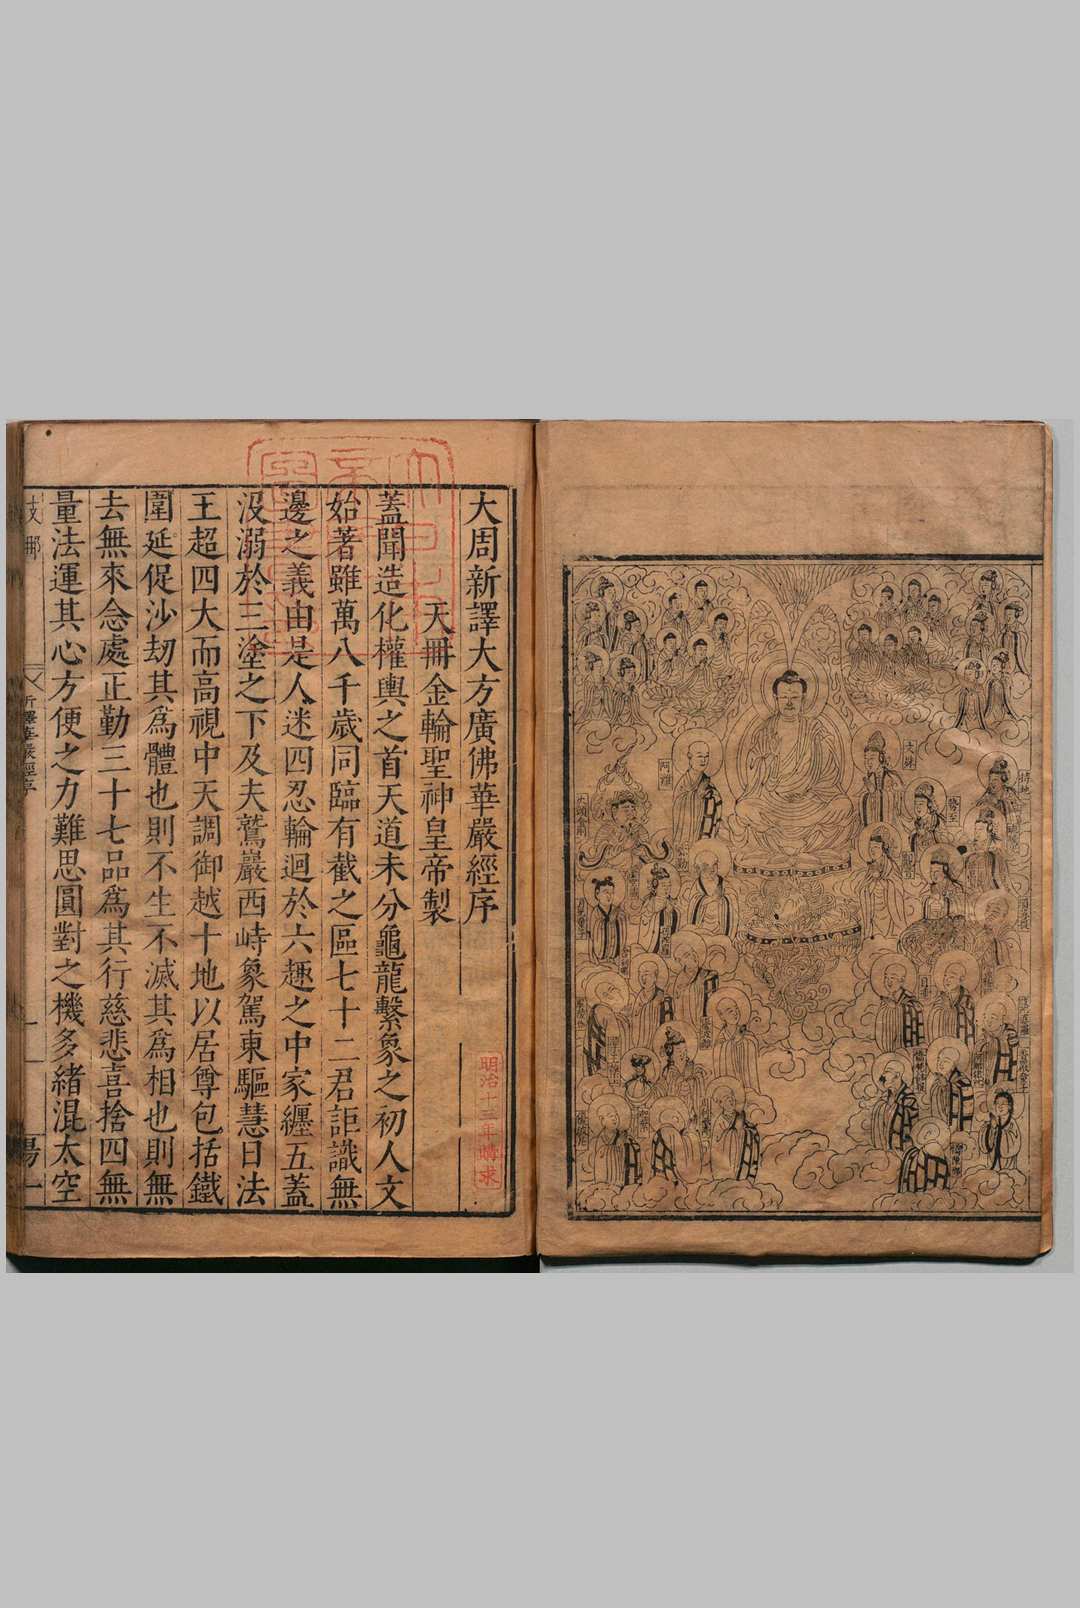 阿難
文殊
勢至
持地
大周新譯大方廣佛華嚴經序
天冊金輪聖神皇帝製
蓋聞造化權輿之首天道未分龜龍繫象之初人文
始著雖萬八千歲同臨有截之區七十二君詎識無
邊之義由是人迷四忍輪迴於六趣之中家纏五蓋
沒溺於三塗之下及夫鷲巖西峙象駕東驅慧日法
王超四大而高視中天調御越十地以居尊包括鐵
圍延促沙劫其為體也則不生不滅其為相也則無
去無來念處正勤三十七品為其行慈悲喜捨四無
量法運其心方便之力難思圓對之機多緒混太空
明治十三年購求
新譯華嚴經序
一